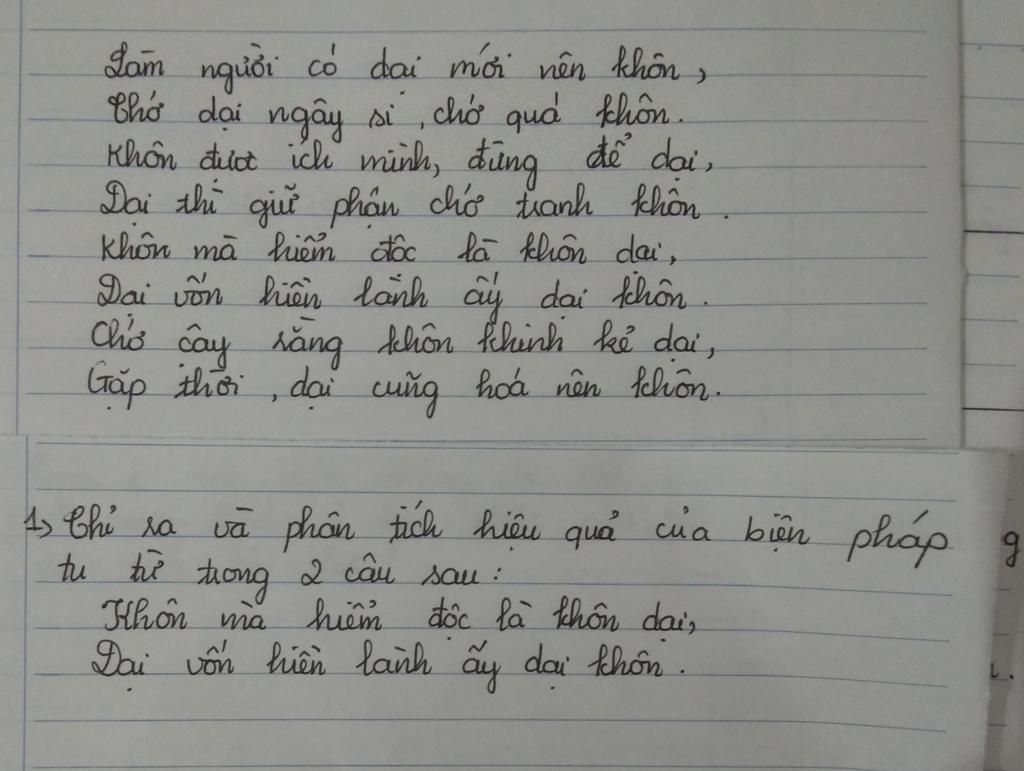 Làm người có dại mới nên khôn,
Chớ dại ngây si, chớ quá khôn.
Khôn được ích mình, đừng để dại,
Dại thì giữ phận chớ tranh khôn.
Khôn mà hiểm độc là khôn dại,
Dại vốn hiền lành ấy dại khôn.
Chớ cậy rằng khôn khinh kẻ dại,
Gặp thời, dại cũng hoá nên khôn.
1) Chỉ ra và phân tích hiệu quả của biện pháp g
tu từ trong 2 câu sau:
Khôn mà hiểm độc là khôn dại,
Dại vốn hiền lành ấy dại khôn.